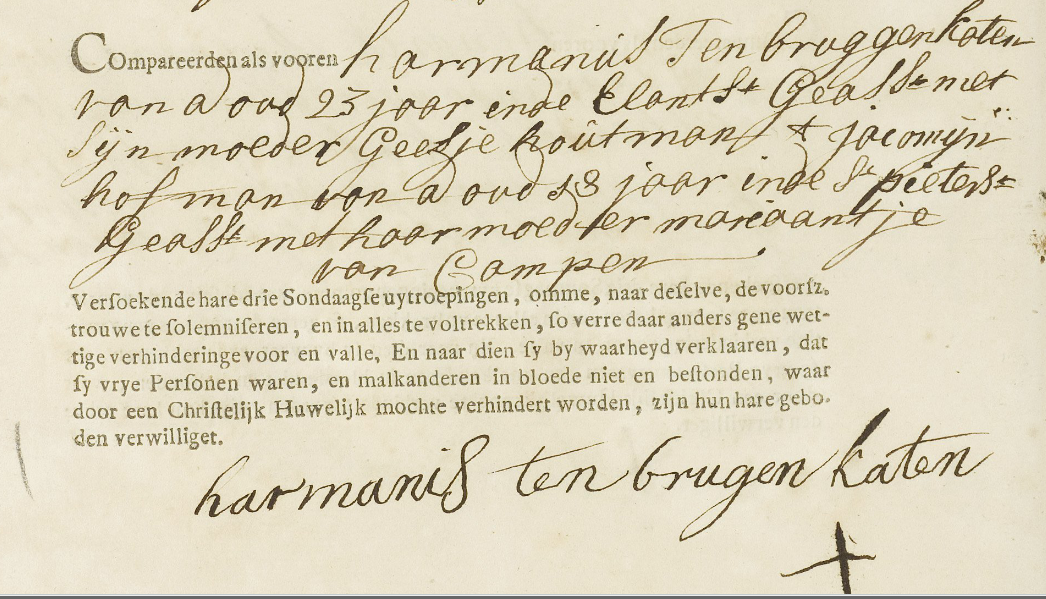 Compareerden als vooren harmanus Ten bruggenkaten
van a oud 23 jaar in de Elants St Geasst met
sijn moeder Geesje houtman & jacomijn
hofman van a oud 18 jaar in de St pieters St
Geasst met haar moeder mariaantje
van Campen
Verſoekende hare drie Sondaagſe uytroepingen, omme, naar deſelve, de voorſz.
trouwe te ſolemniſeren, en in alles te voltrekken, ſo verre daar anders gene wet-
tige verhinderinge voor en valle, En naar dien ſy by waarheyd verklaaren, dat
ſy vrye Perſonen waren, en malkanderen in bloede niet en beſtonden, waar
door een Chriſtelijk Huwelijk mochte verhindert worden, zijn hun hare gebo-
den verwilliget.
harmanis ten brugen katen